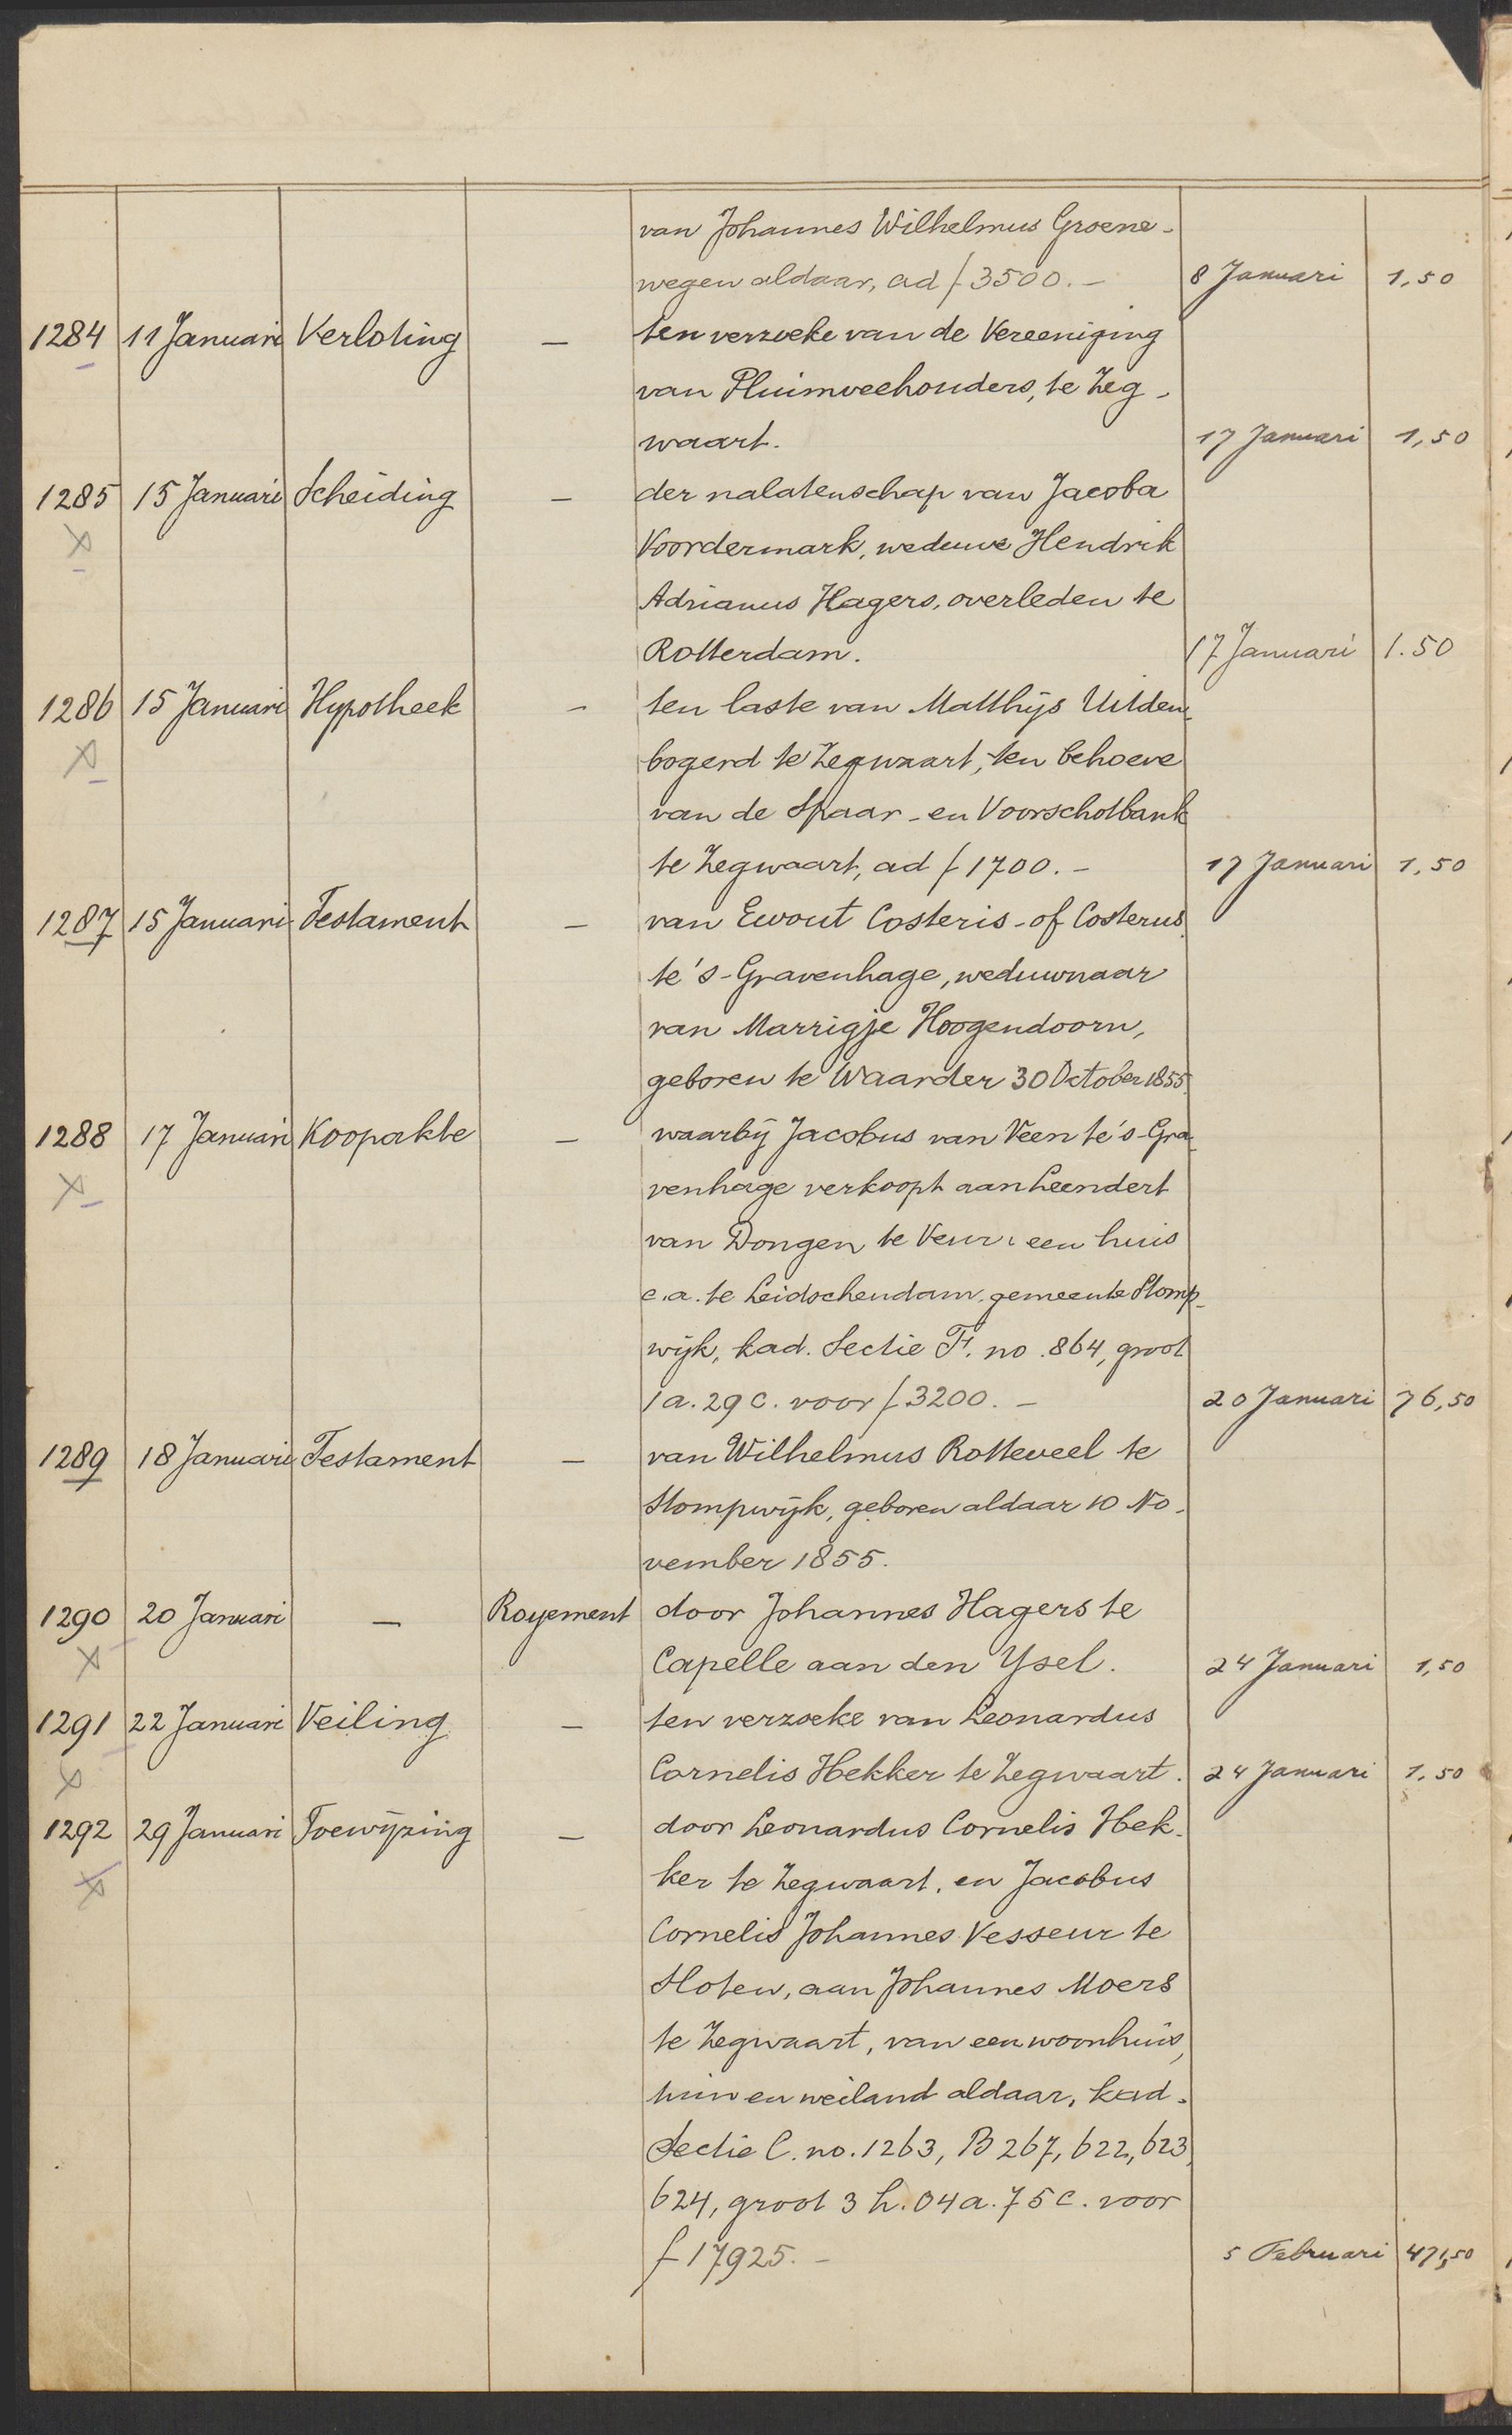 van Johannes Wilhelmus Groene-
wegen aldaar, ad f 3500.- 8 Januari 1,50
1284 11 Januari Verloting — ten verzoeke van de Vereeniging
van Pluimveehouders, te Zeg-
waart. 17 Januari 1,50
1285 15 Januari Scheiding — der nalatenschap van Jacoba
Voordermark, weduwe Hendrik
Adrianus Hagers, overleden te
Rotterdam. 17 Januari 1.50
1286 15 Januari Hypotheek — ten laste van Matthijs Uitden-
bogerd te Zegwaart, ten behoeve
van de Spaar- en Voorschotbank
te Zegwaart, ad f 1700.- 17 Januari 1,50
1287 15 Januari Testament — van Ewout Costeris- of Costerus
te 's-Gravenhage, weduwnaar
van Marrigje Hoogendoorn,
geboren te Waarder 30 October 1855.
1288 17 Januari Koopakte — waarbij Jacobus van Veen te 's-Gra-
venhage verkoopt aan Leendert
van Dongen te Veur: een huis
c.a. te Leidschendam, gemeente Stomp-
wijk, kad. Sectie F. no. 864, groot
1 a. 29 c. voor f 3200.- 20 Januari 76,50
1289 18 Januari Testament — van Wilhelmus Rotteveel te
Stompwijk, geboren aldaar 10 No-
vember 1855.
1290 20 Januari — Royement door Johannes Hagers te
Capelle aan den Ysel. 24 Januari 1,50
1291 22 Januari Veiling — ten verzoeke van Leonardus
Cornelis Hekker te Zegwaart. 24 Januari 1,50
1292 29 Januari Toewijzing — door Leonardus Cornelis Hek-
ker te Zegwaart, en Jacobus
Cornelis Johannes Vesseur te
Sloten, aan Johannes Moers
te Zegwaart, van een woonhuis,
tuin en weiland aldaar, kad.
Sectie C. no. 1263, B 267, 622, 623,
624, groot 3 h. 04 a. 75 c. voor
f 17925.- 5 Februari 471,50